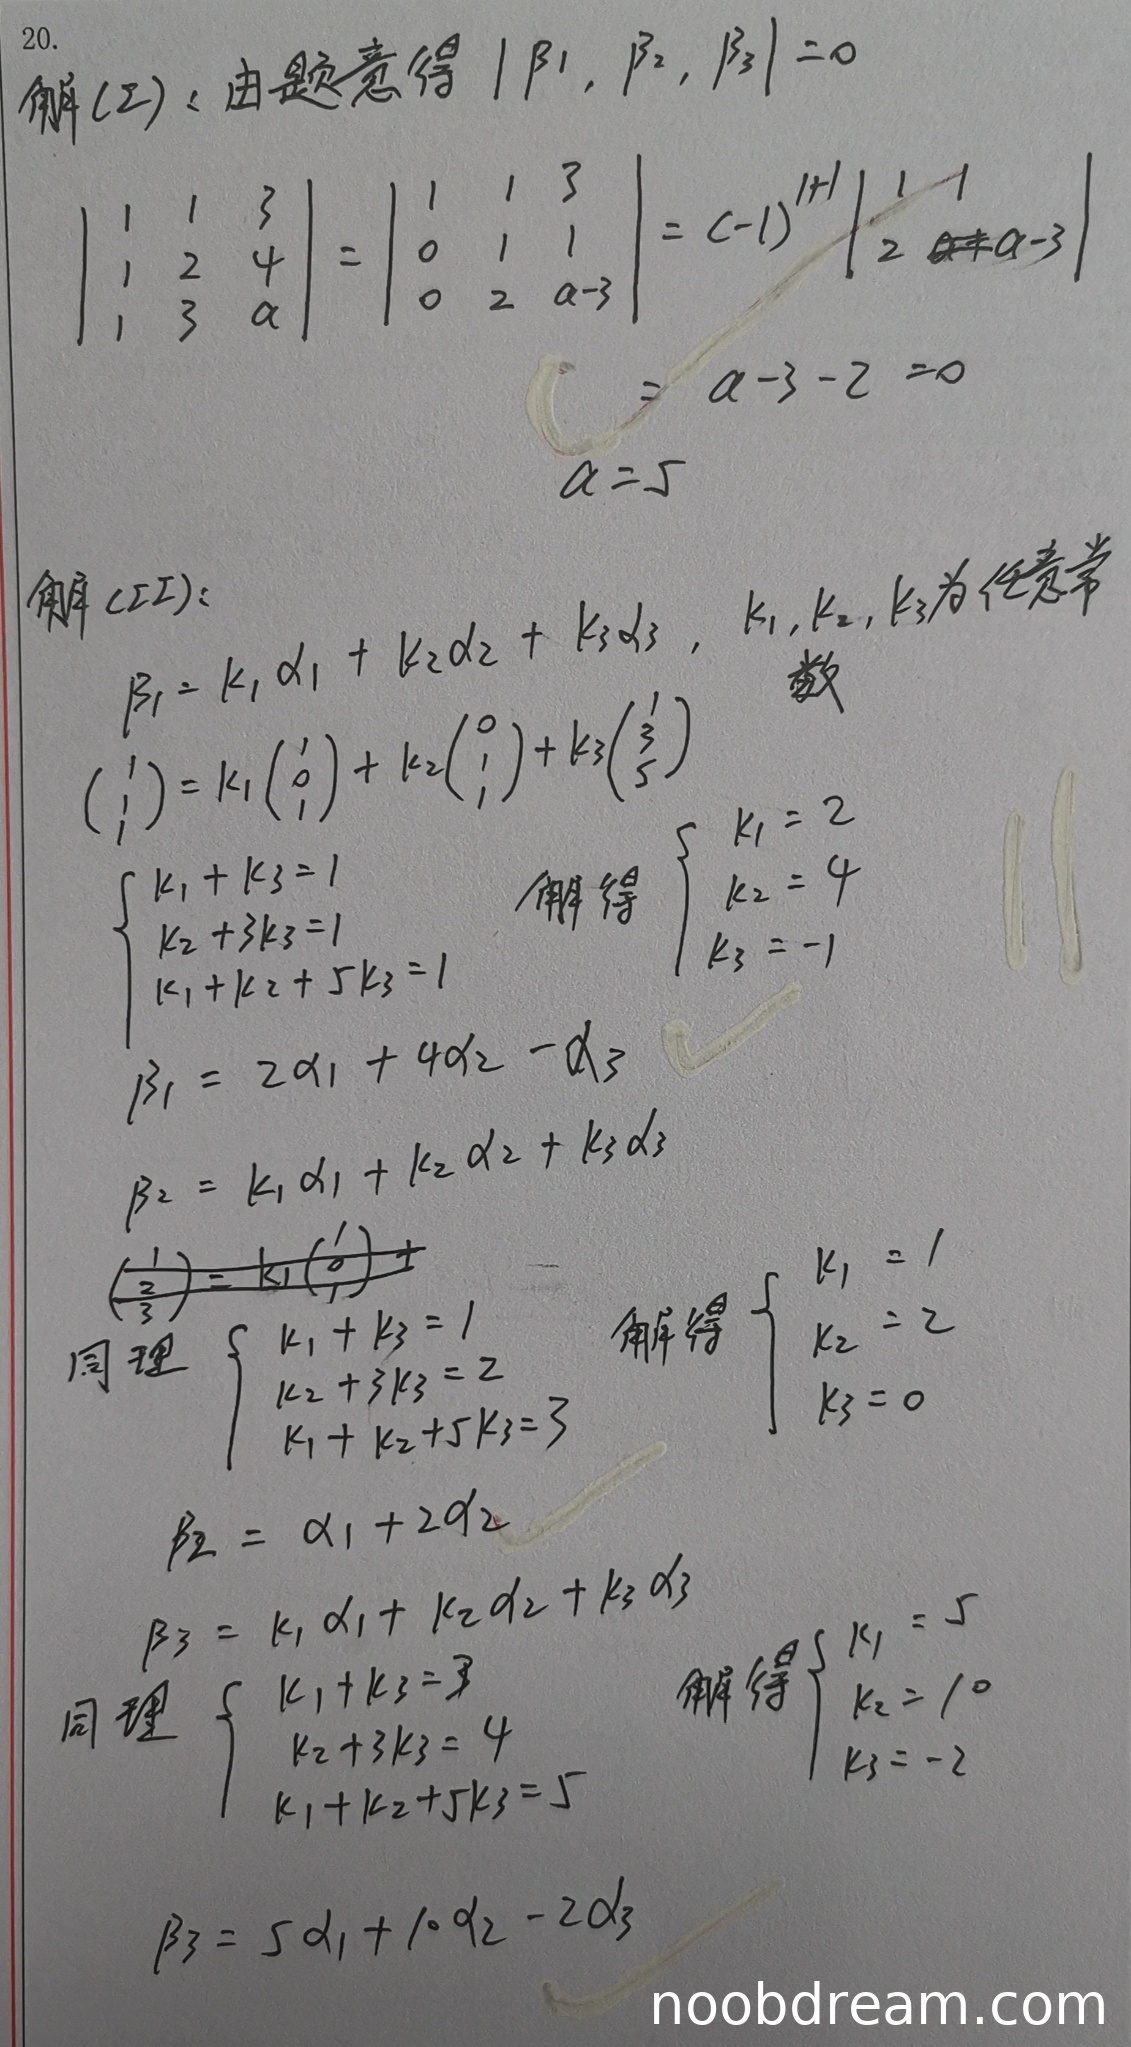 20.
解(I): 由题意得 |β1, β2, β3| = 0
| 1 1 3 | = | 1 1 3 | = (-1)^{1+1} | 1 1 |
| 1 2 4 | | 0 1 1 | | 2 a-3 |
| 1 3 a | | 0 2 a-3 |
= a-3-2 = 0
a = 5
解(II):
β1 = k1α1 + k2α2 + k3α3, k1, k2, k3为任意常
数
(1 1 1) = k1(1 0 1) + k2(0 1 1) + k3(1 3 5)
{ k1 + k3 = 1
k2 + 3k3 = 1
k1 + k2 + 5k3 = 1
解得 { k1 = 2
k2 = 4
k3 = -1
11
β1 = 2α1 + 4α2 - α3
β2 = k1α1 + k2α2 + k3α3
(1 2 3) = k1(1 0 1) +
同理 { k1 + k3 = 1
k2 + 3k3 = 2
k1 + k2 + 5k3 = 3
解得 { k1 = 1
k2 = 2
k3 = 0
β2 = α1 + 2α2
β3 = k1α1 + k2α2 + k3α3
同理 { k1 + k3 = 3
k2 + 3k3 = 4
k1 + k2 + 5k3 = 5
解得 { k1 = 5
k2 = 10
k3 = -2
β3 = 5α1 + 10α2 - 2α3
noobdream.com